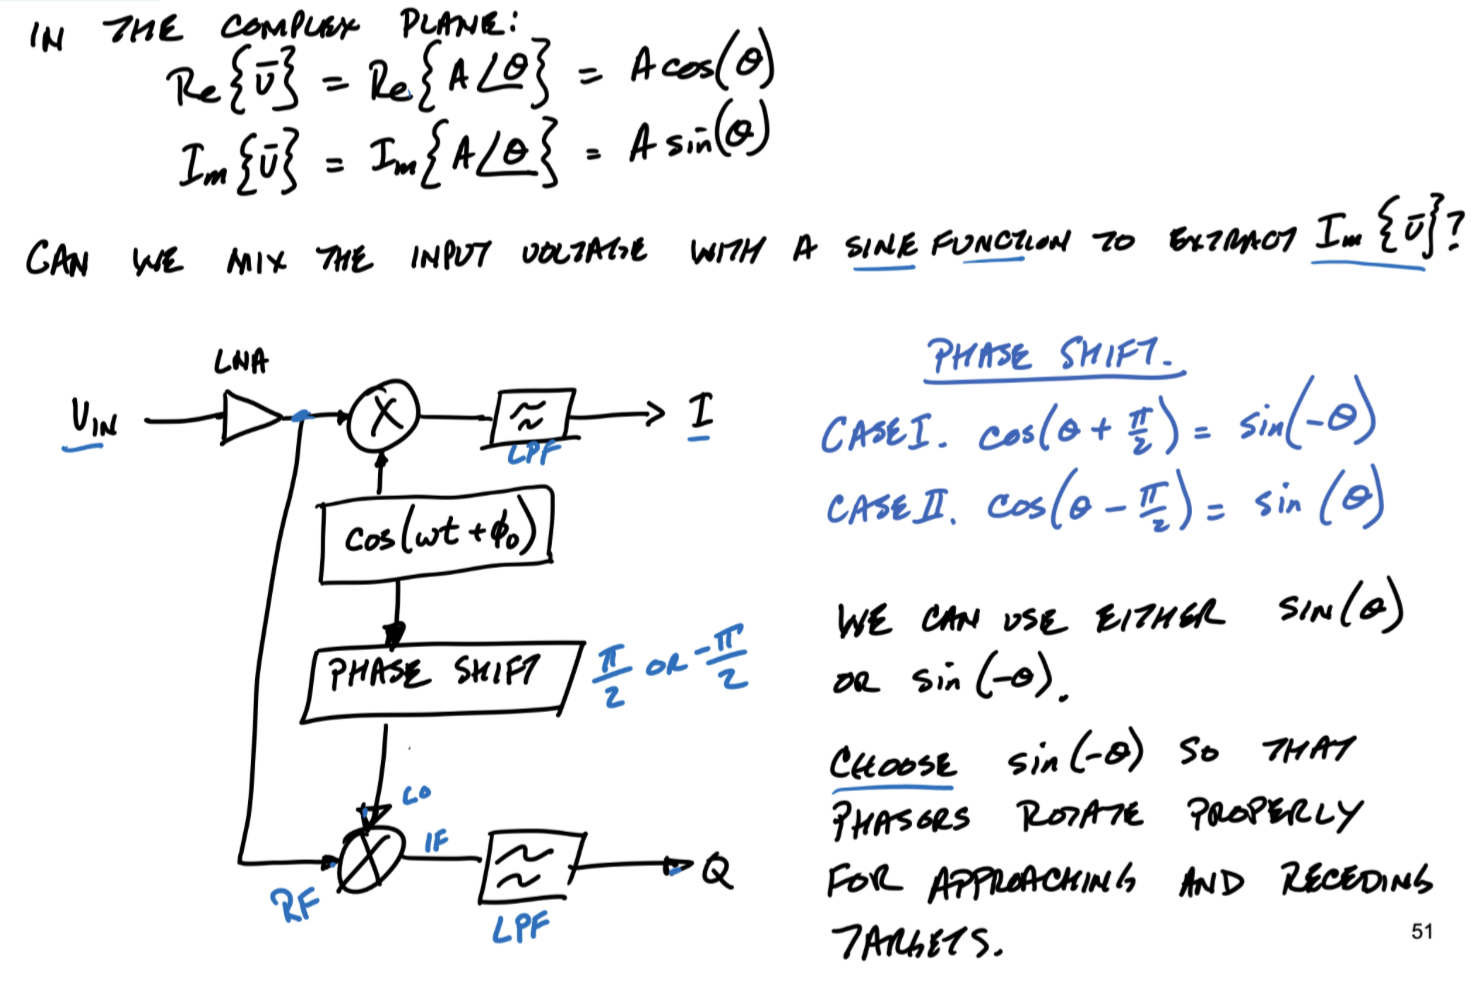 IN THE COMPLEX PLANE:
Re{v̄} = Re{A∠θ} = A cos(θ)
Im{v̄} = Im{A∠θ} = A sin(θ)
CAN WE MIX THE INPUT VOLTAGE WITH A SINE FUNCTION TO EXTRACT Im{v̄}?
LNA
VIN
X
LPF
I
cos(ωt + ϕ₀)
PHASE SHIFT
π/2 OR -π/2
LO
X
IF
RF
LPF
Q
PHASE SHIFT.
CASE I. cos(θ + π/2) = sin(-θ)
CASE II. cos(θ - π/2) = sin(θ)
WE CAN USE EITHER SIN(θ)
OR sin(-θ).
CHOOSE sin(-θ) SO THAT
PHASORS ROTATE PROPERLY
FOR APPROACHING AND RECEDING
TARGETS.
51